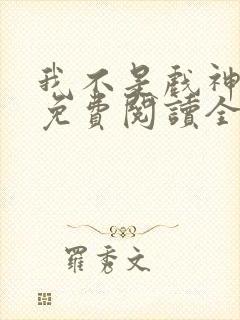 我不是戲神
免費閱讀全
羅秀文